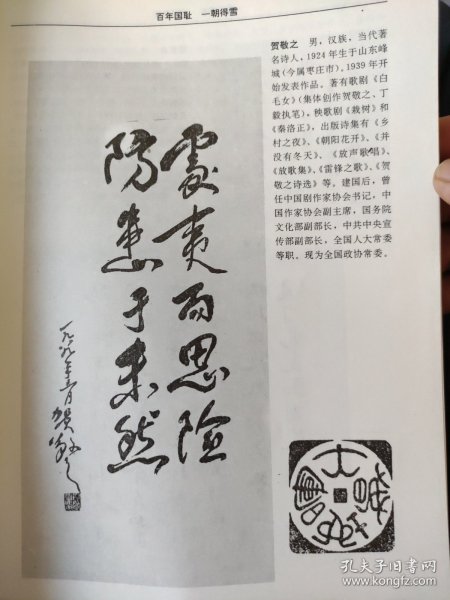 百年国耻 一朝得雪
贺敬之 男，汉族，当代著
名诗人，1924年生于山东峄
城(今属枣庄市)。1939年开
始发表作品。著有歌剧《白
毛女》(集体创作贺敬之、丁
毅执笔)，秧歌剧《栽树》和
《秦洛正》，出版诗集有《乡
村之夜》、《朝阳花开》、《并
没有冬天》、《放声歌唱》、
《放歌集》、《雷锋之歌》、《贺
敬之诗选》等。建国后，曾
任中国剧作家协会书记，中
国作家协会副主席，国务院
文化部副部长，中共中央宣
传部副部长，全国人大常委
等职。现为全国政协常委。
處夷而思险
防患于未然
贺敬之
孔夫子旧书网
www.kongfz.com